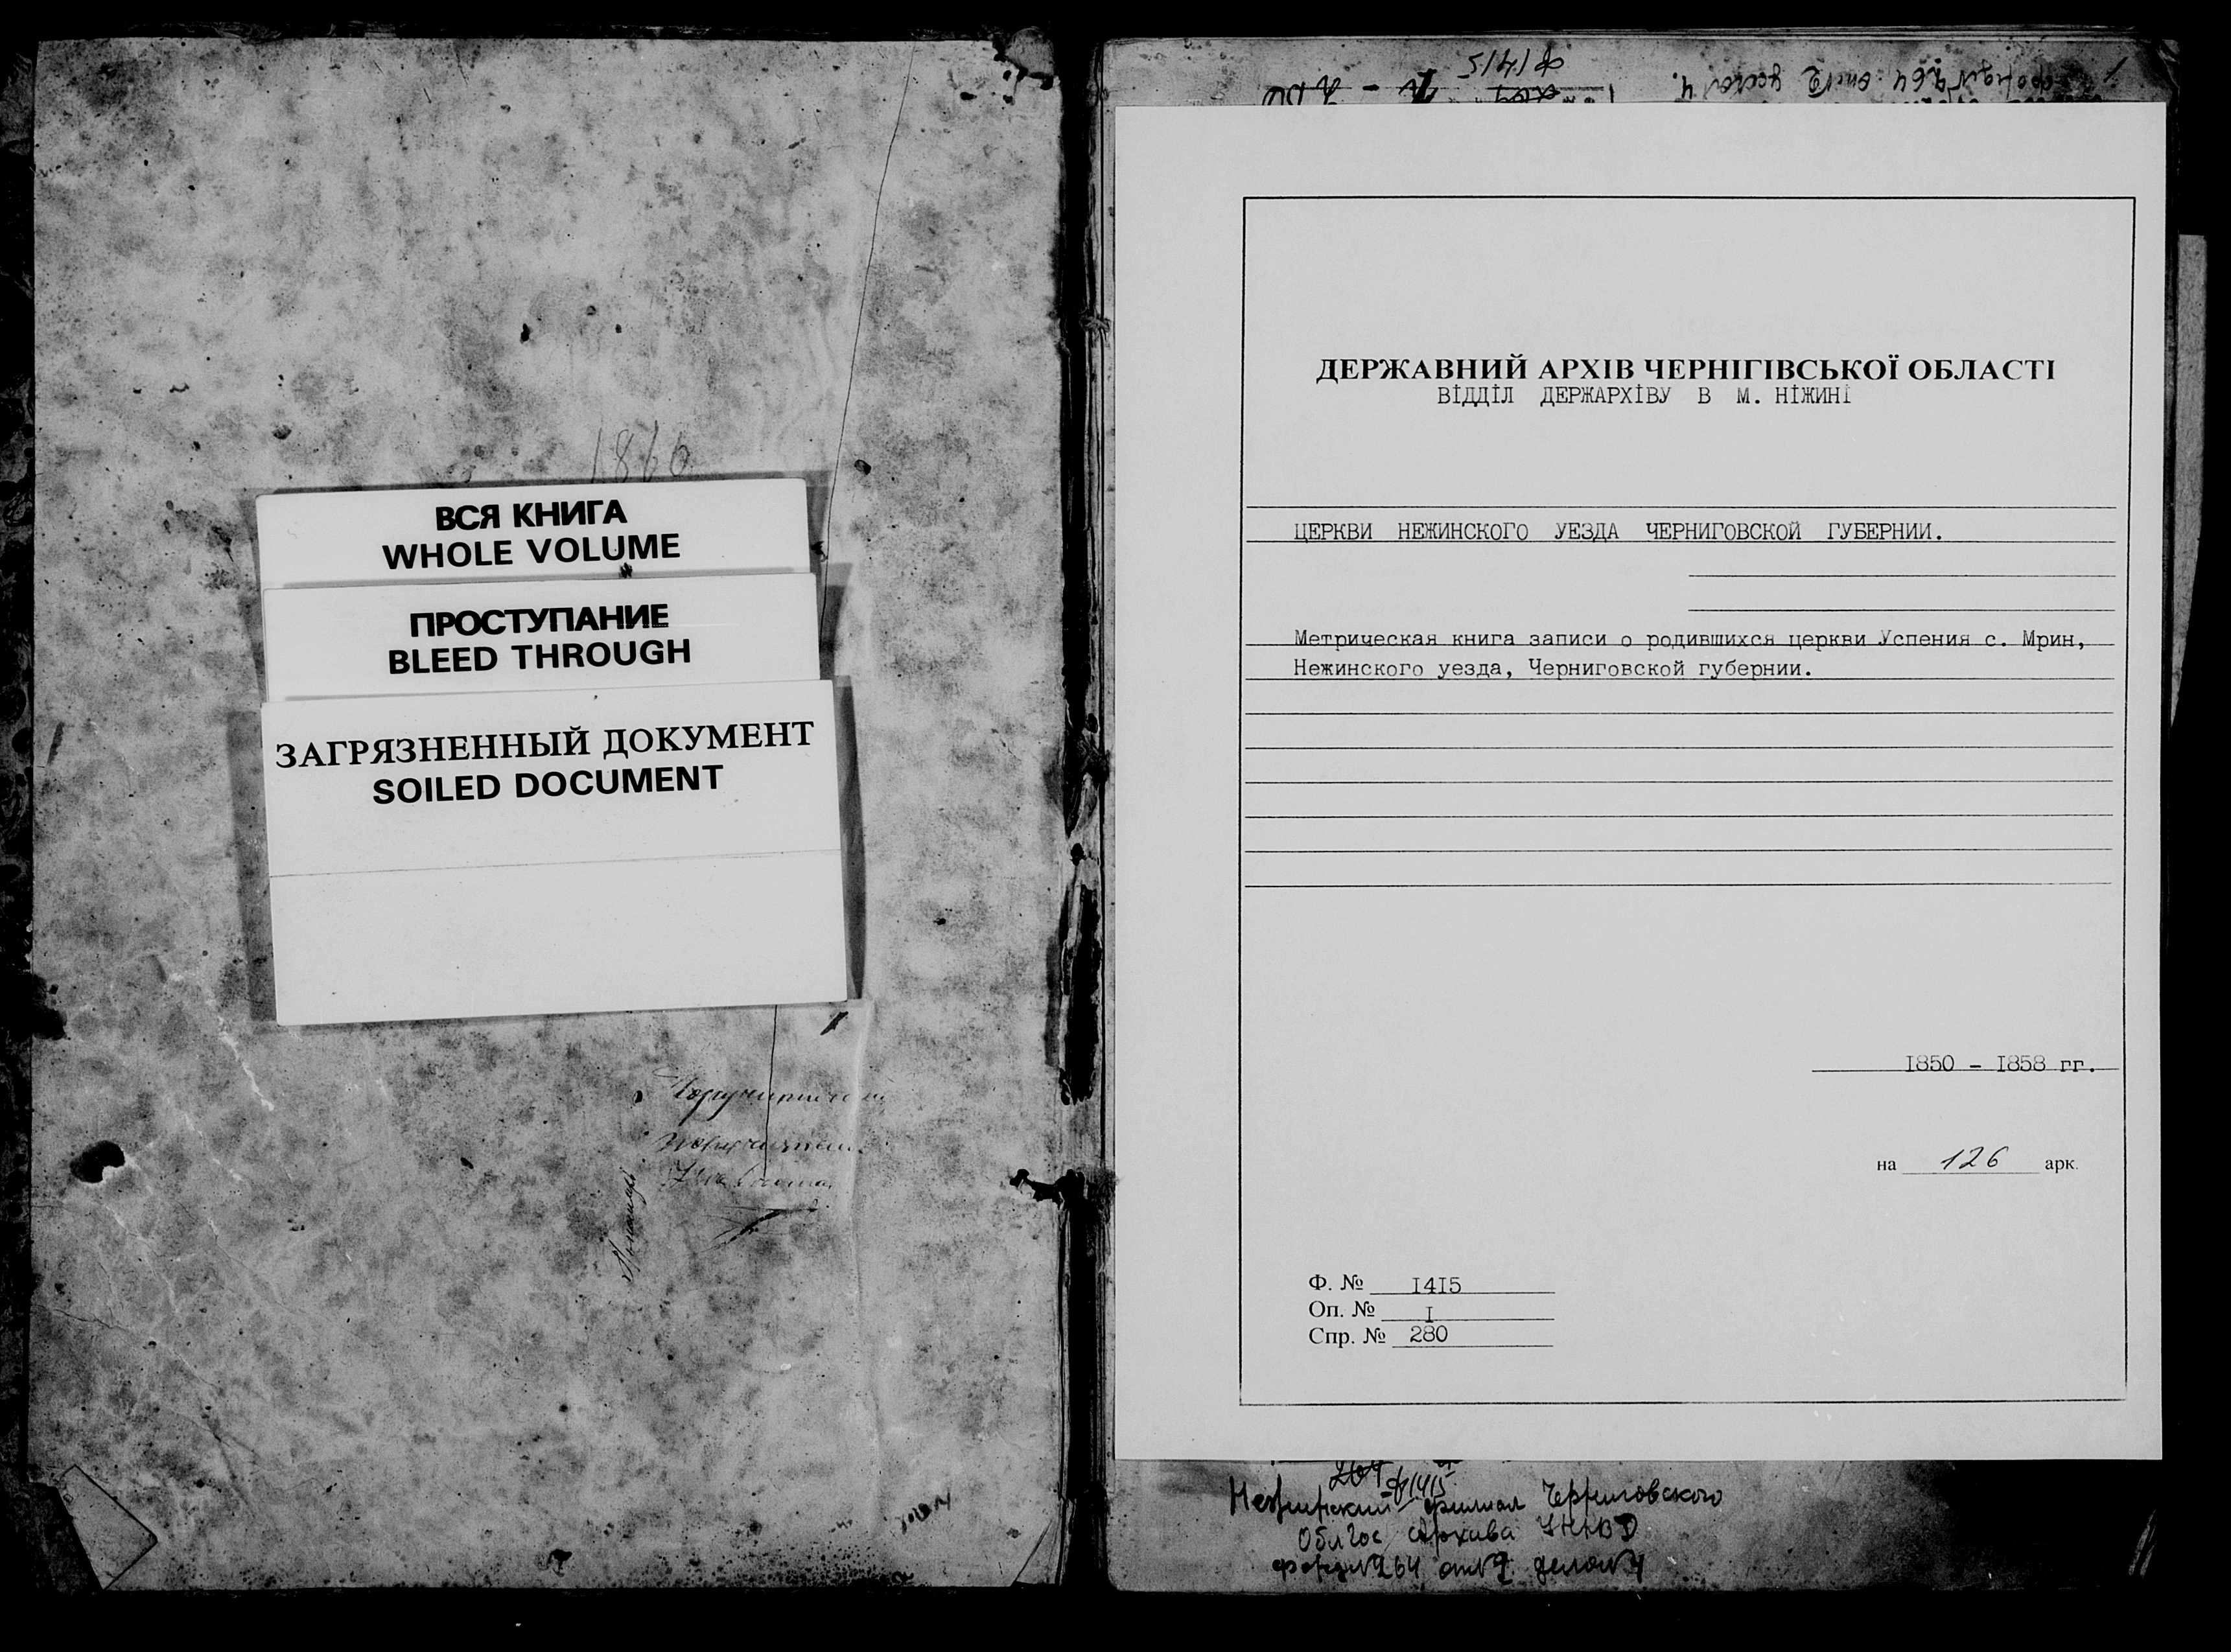 1866
ВСЯ КНИГА
WHOLE VOLUME
ПРОСТУПАНИЕ
BLEED THROUGH
ЗАГРЯЗНЕННЫЙ ДОКУМЕНТ
SOILED DOCUMENT
ф 1415
1
ДЕРЖАВНИЙ АРХІВ ЧЕРНІГІВСЬКОЇ ОБЛАСТІ
ВІДДІЛ ДЕРЖАРХІВУ В М. НІЖИНІ
ЦЕРКВИ НЕЖИНСКОГО УЕЗДА ЧЕРНИГОВСКОЙ ГУБЕРНИИ.
Метрическая книга записи о родившихся церкви Успения с. Мрин,
Нежинского уезда, Черниговской губернии.
I850 - I858 гг.
на 126 арк.
Ф. № I4I5
Оп. № I
Спр. № 280
ф1415
Нежинский филиал Черниговского
Облгос Архива УНКВД
фонд№264 оп№2 дело№4